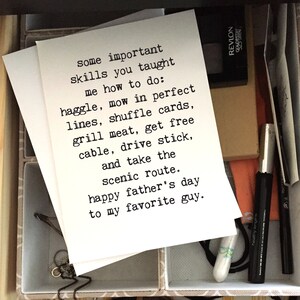 some important
skills you taught
me how to do:
haggle, mow in perfect
lines, shuffle cards,
grill meat, get free
cable, drive stick,
and take the
scenic route.
happy father's day
to my favorite guy.
REVLON